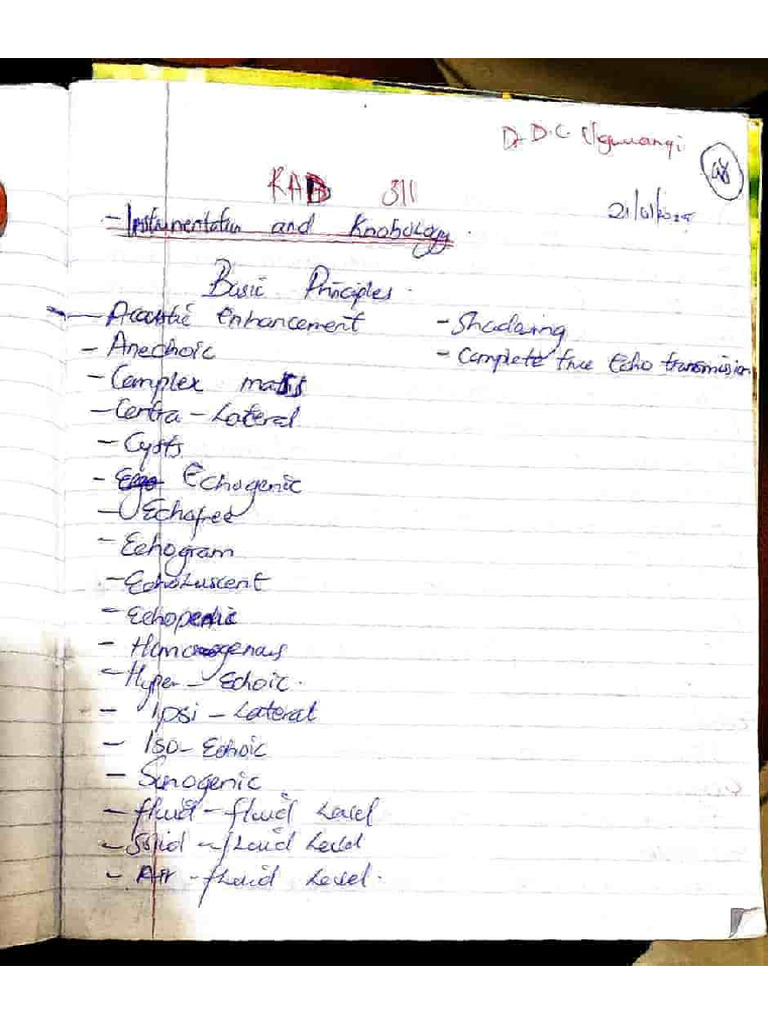 Dr D.C. Ugwuanyi
48
RAD 311
21/01/2025
- Instrumentation and Knobology.
Basic Principles.
- Acoustic Enhancement
- Anechoic
- Complex mass
- Contra - Lateral
- Cysts
- Echogenic
- Echofree
- Echogram
- Echoluscent
- Echopenic
- Homogenous
- Hyper - Echoic.
- Ipsi - Lateral
- Iso - Echoic
- Sonogenic
- fluid - fluid Level
- Solid - fluid Level
- Air - fluid Level.
- Shadowing
- Complete free Echo transmission